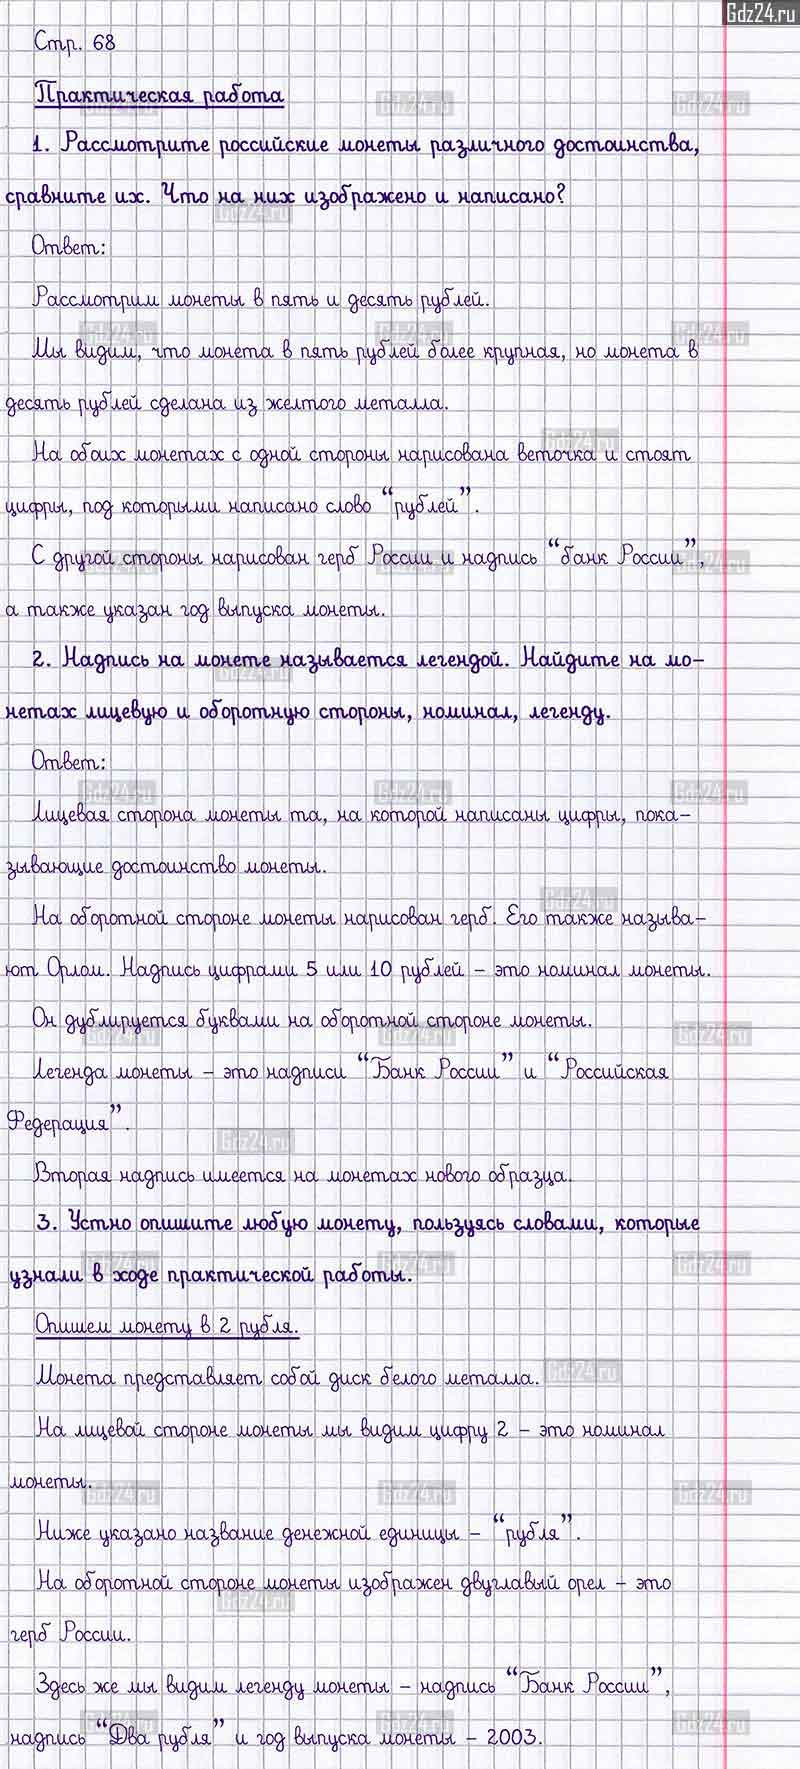 Gdz24.ru
Стр. 68
Практическая работа
1. Рассмотрите российские монеты различного достоинства,
сравните их. Что на них изображено и написано?
Ответ:
Рассмотрим монеты в пять и десять рублей.
Мы видим, что монета в пять рублей более крупная, но монета в
десять рублей сделана из желтого металла.
На обоих монетах с одной стороны нарисована веточка и стоят
цифры, под которыми написано слово “рублей”.
С другой стороны нарисован герб России и надпись “банк России”,
а также указан год выпуска монеты.
2. Надпись на монете называется легендой. Найдите на мо-
нетах лицевую и оборотную стороны, номинал, легенду.
Ответ:
Лицевая сторона монеты та, на которой написаны цифры, пока-
зывающие достоинство монеты.
На оборотной стороне монеты нарисован герб. Его также называ-
ют Орлом. Надпись цифрами 5 или 10 рублей – это номинал монеты.
Он дублируется буквами на оборотной стороне монеты.
Легенда монеты – это надписи “Банк России” и “Российская
Федерация”.
Вторая надпись имеется на монетах нового образца.
3. Устно опишите любую монету, пользуясь словами, которые
узнали в ходе практической работы.
Опишем монету в 2 рубля.
Монета представляет собой диск белого металла.
На лицевой стороне монеты мы видим цифру 2 – это номинал
монеты.
Ниже указано название денежной единицы – “рубля”.
На оборотной стороне монеты изображен двуглавый орел – это
герб России.
Здесь же мы видим легенду монеты – надпись “Банк России”,
надпись “Два рубля” и год выпуска монеты – 2003.